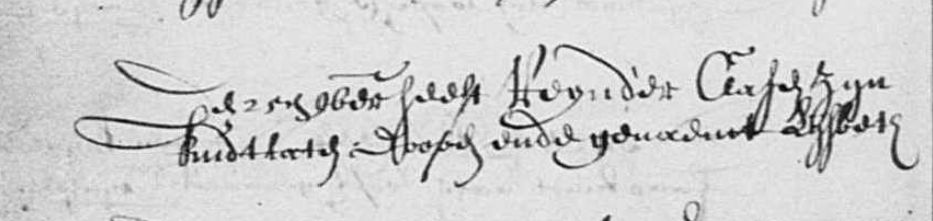 den 25en 9ber heeft Reynder Clasen zyn
kindt laten doopen ende genaemt Lysbeth